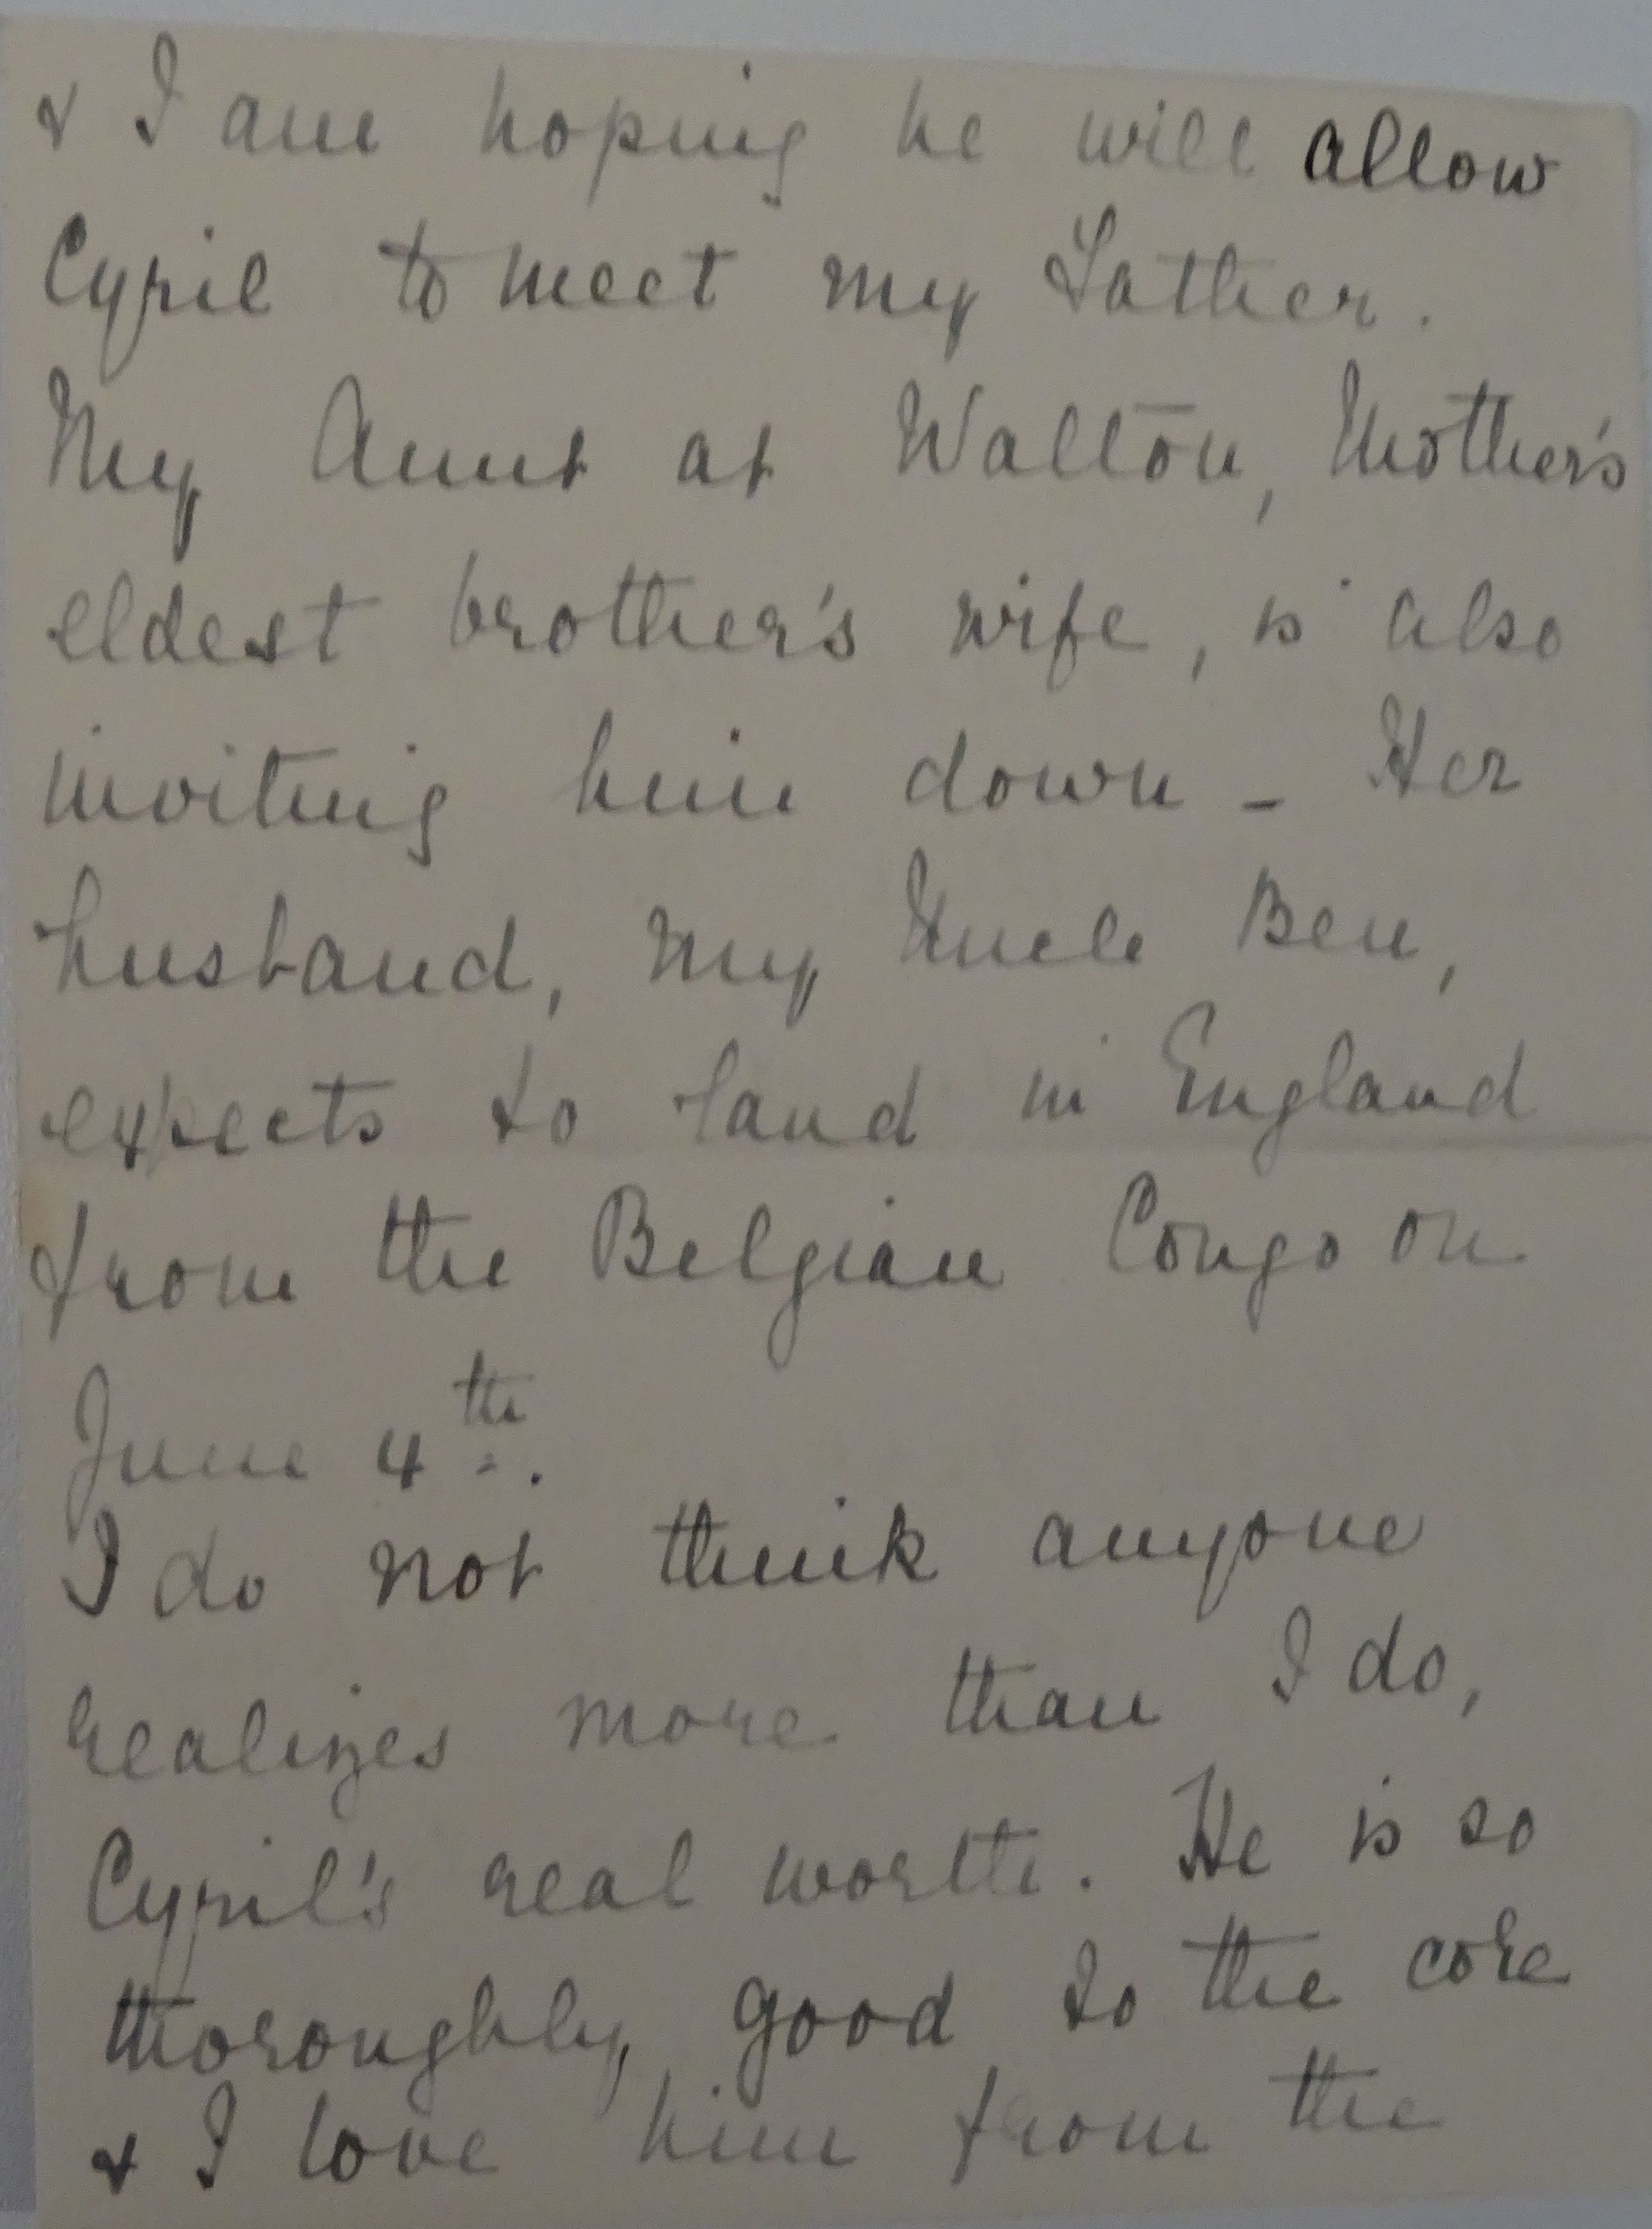 & I am hoping he will allow
Cyril to meet my Father.
My Aunt at Walton, Mother's
eldest brother's wife, is also
inviting him down - Her
husband, my Uncle Ben,
expects to land in England
from the Belgian Congo on
June 4th.
I do not think anyone
realizes more than I do,
Cyril's real worth. He is so
thoroughly good to the core
& I love him from the